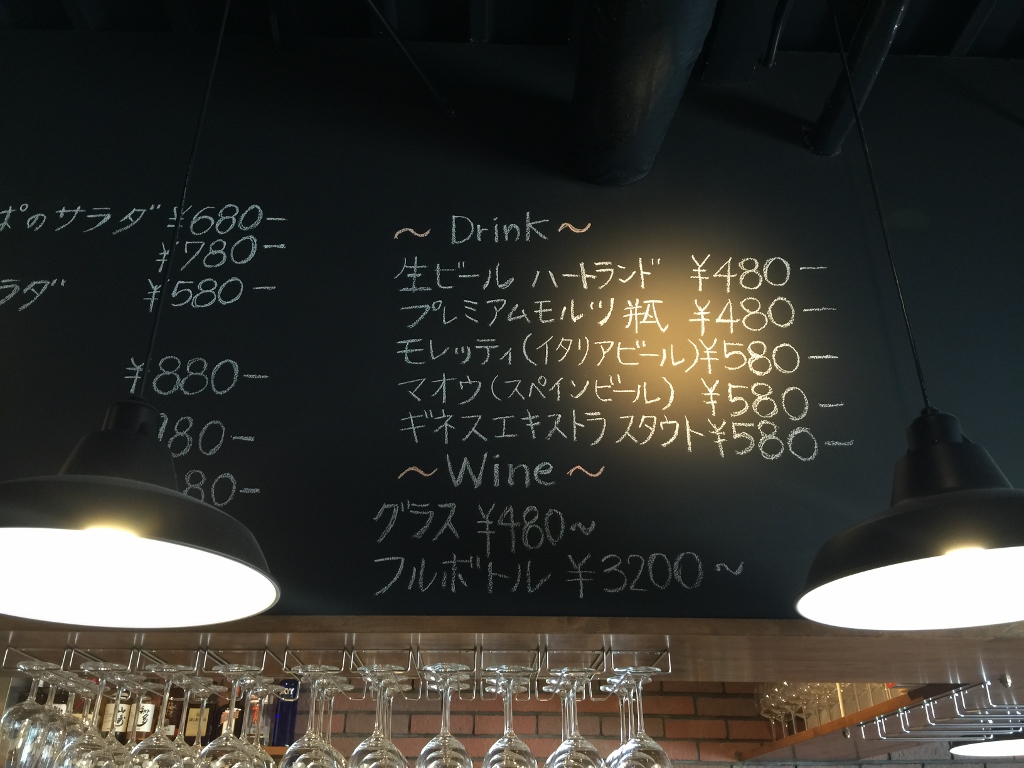 ぱのサラダ ¥680-
¥780-
ラダ ¥580-
¥880-
80-
80-
～ Drink ～
生ビール ハートランド ¥480-
プレミアムモルツ 瓶 ¥480-
モレッティ(イタリアビール)¥580-
マオウ(スペインビール) ¥580-
ギネスエキストラ スタウト¥580-
～ Wine ～
グラス ¥480～
フルボトル ¥3200～